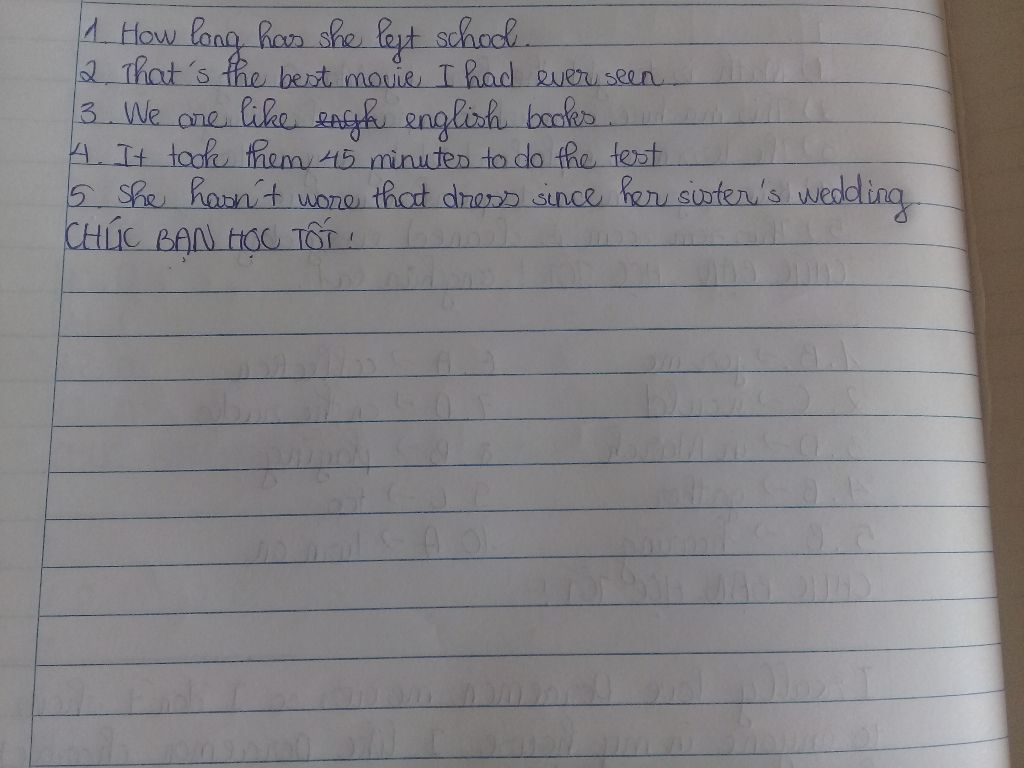 1. How long has she left school.
2. That's the best movie I had ever seen
3. We are like english books.
4. It took them 45 minutes to do the test
5. She hasn't wore that dress since her sister's wedding.
CHÚC BẠN HỌC TỐT!